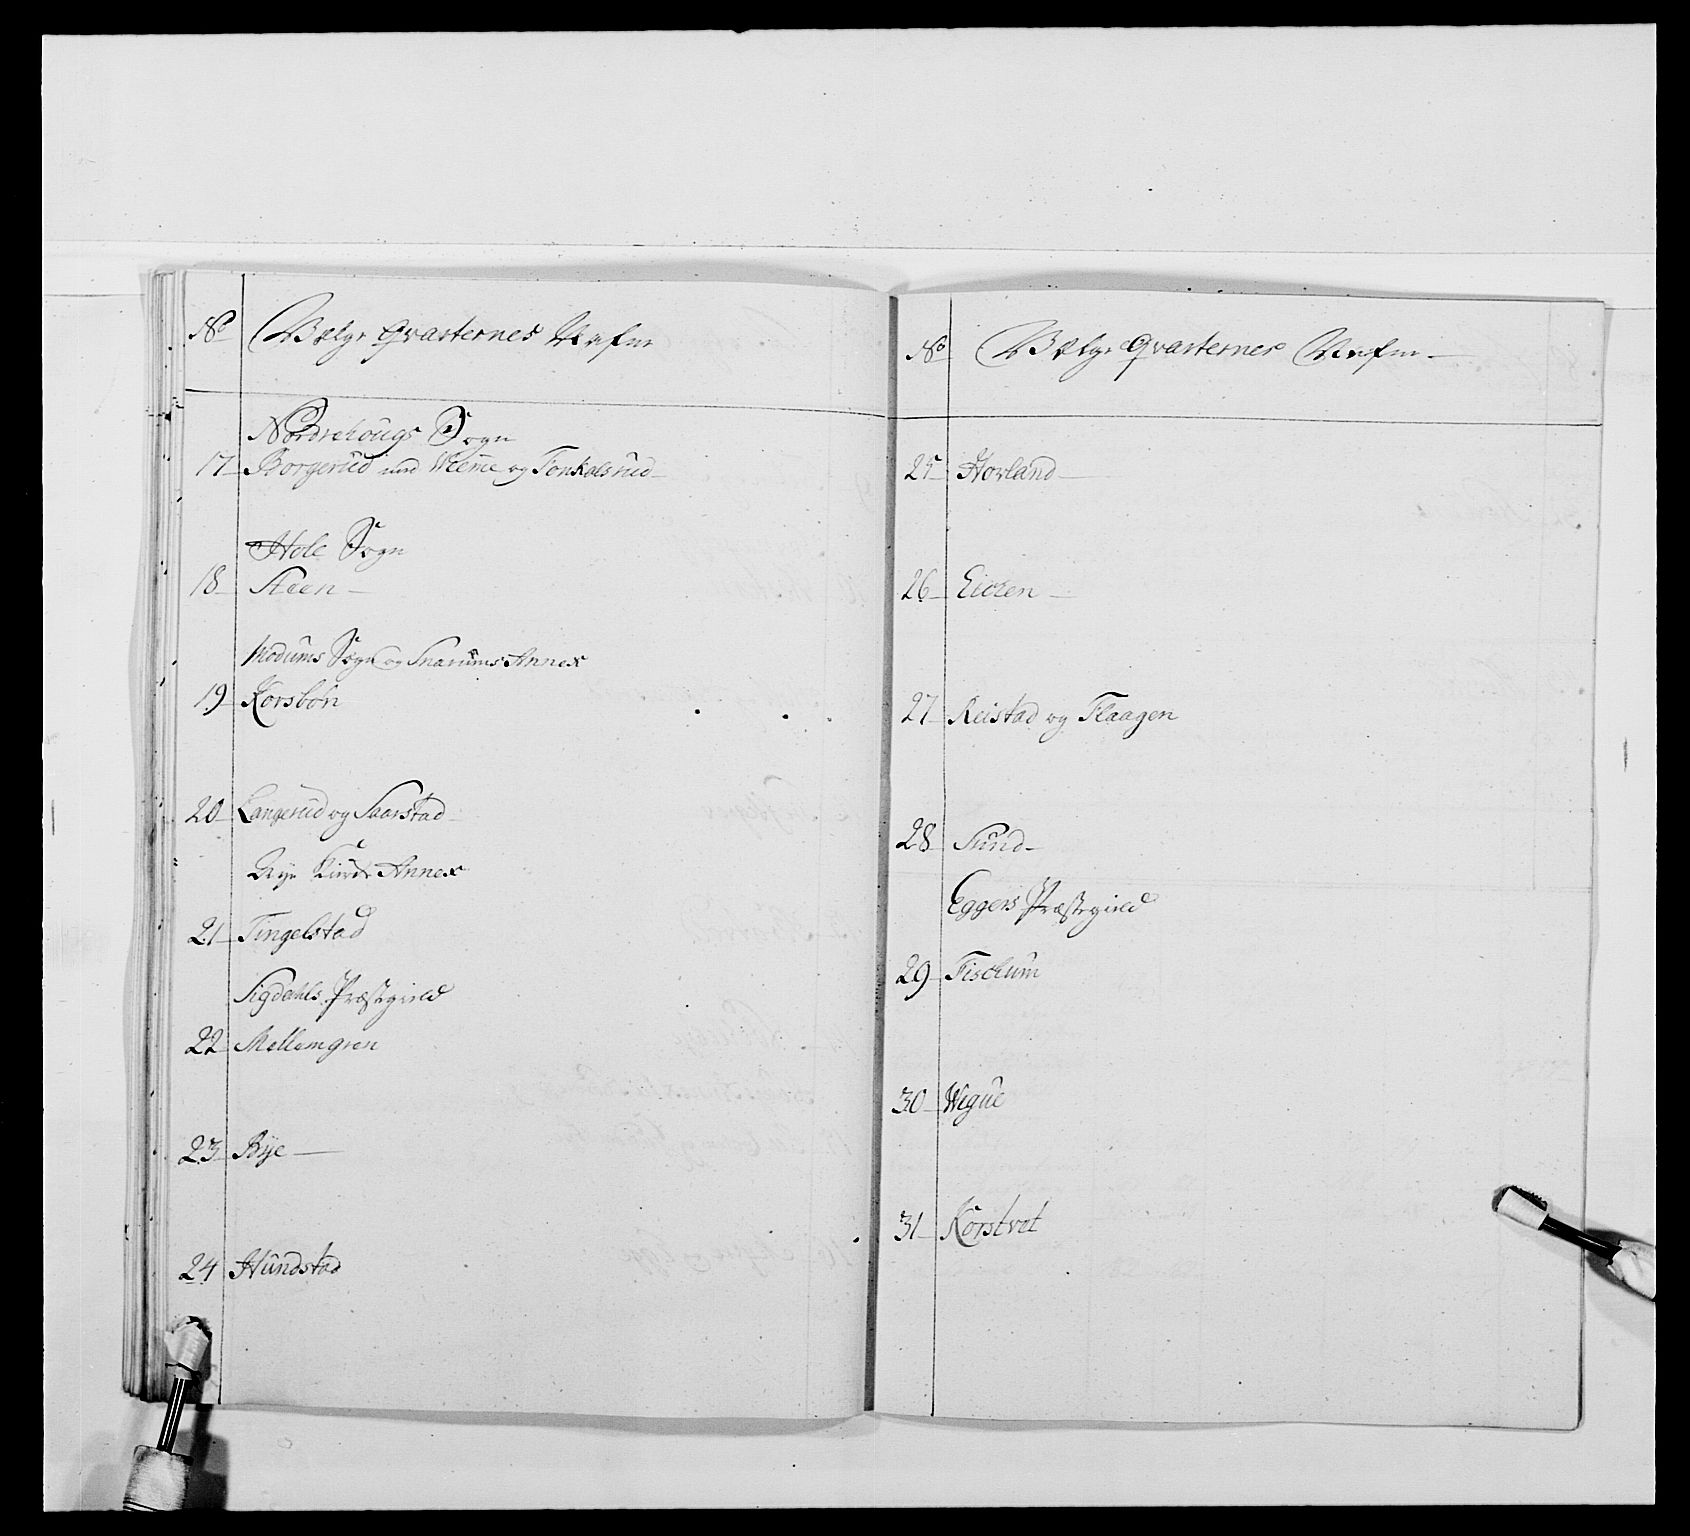 No Qvarternes Nafne
Nordrehougs Sogn
17 Borgerud med Weeme og Tonkelsrud
Hole Sogn
18 Steen
Modums Sogn og Snarums Annex
19 Korsbøn
20 Langerud og Saarstad
Nye Kirke Annex
21 Tingelstad
Sigdahls Præstegield
22 Mellemgren
23 Bye
24 Hundstad
No Qvarternes Nafne
25 Hovland
26 Eicren
27 Reistad og Flaagen
28 Sund
Eggers Præstegield
29 Fischum
30 Wegue
31 Korstvet